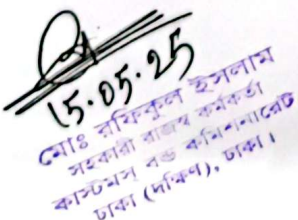 15.05.25
মোঃ রফিকুল ইসলাম
সহকারী রাজস্ব কর্মকর্তা
কাস্টমস্ বন্ড কমিশনারেট
ঢাকা (দক্ষিণ), ঢাকা।